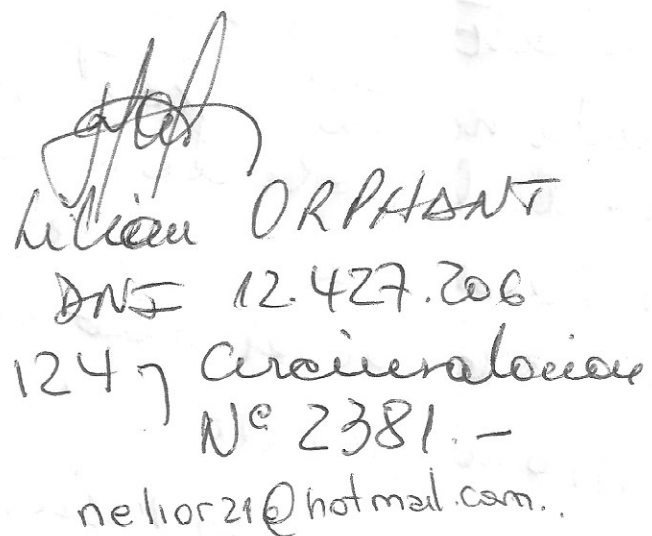 Lilian ORPHANT
DNI 12.427.206
124 y Circunvalacion
Nº 2381.-
nelior21@hotmail.com..